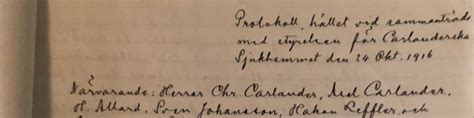 Protokoll, hållet vid sammanträde
med styrelsen för Carlanderska
Sjukhemmet den 24 Okt. 1916
Närvarande: Herrar Chr. Carlander, Axel Carlander,
H. Allard, Sven Johansson, Håkan Leffler och